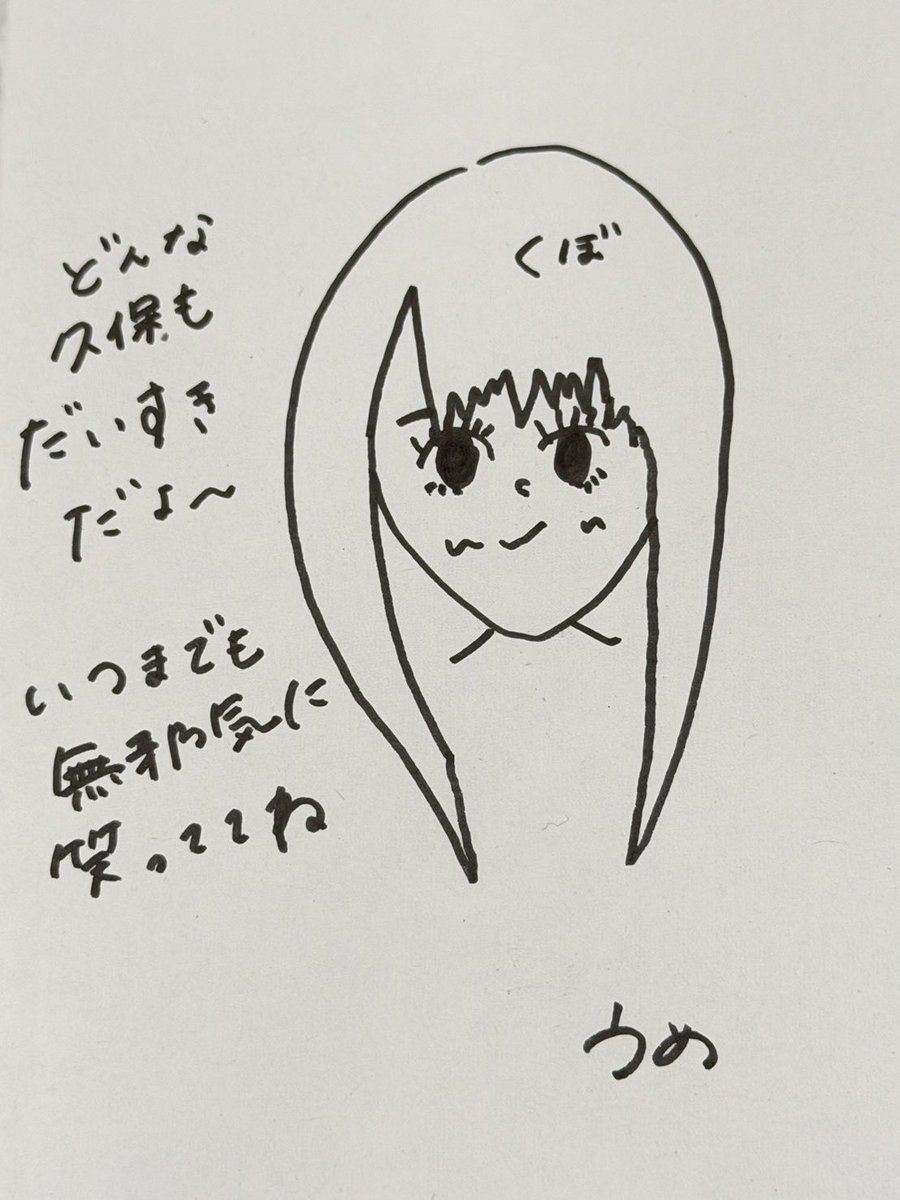 どんな
久保も
だいすき
だよ〜
いつまでも
無邪気に
笑っててね
くぼ
うめ